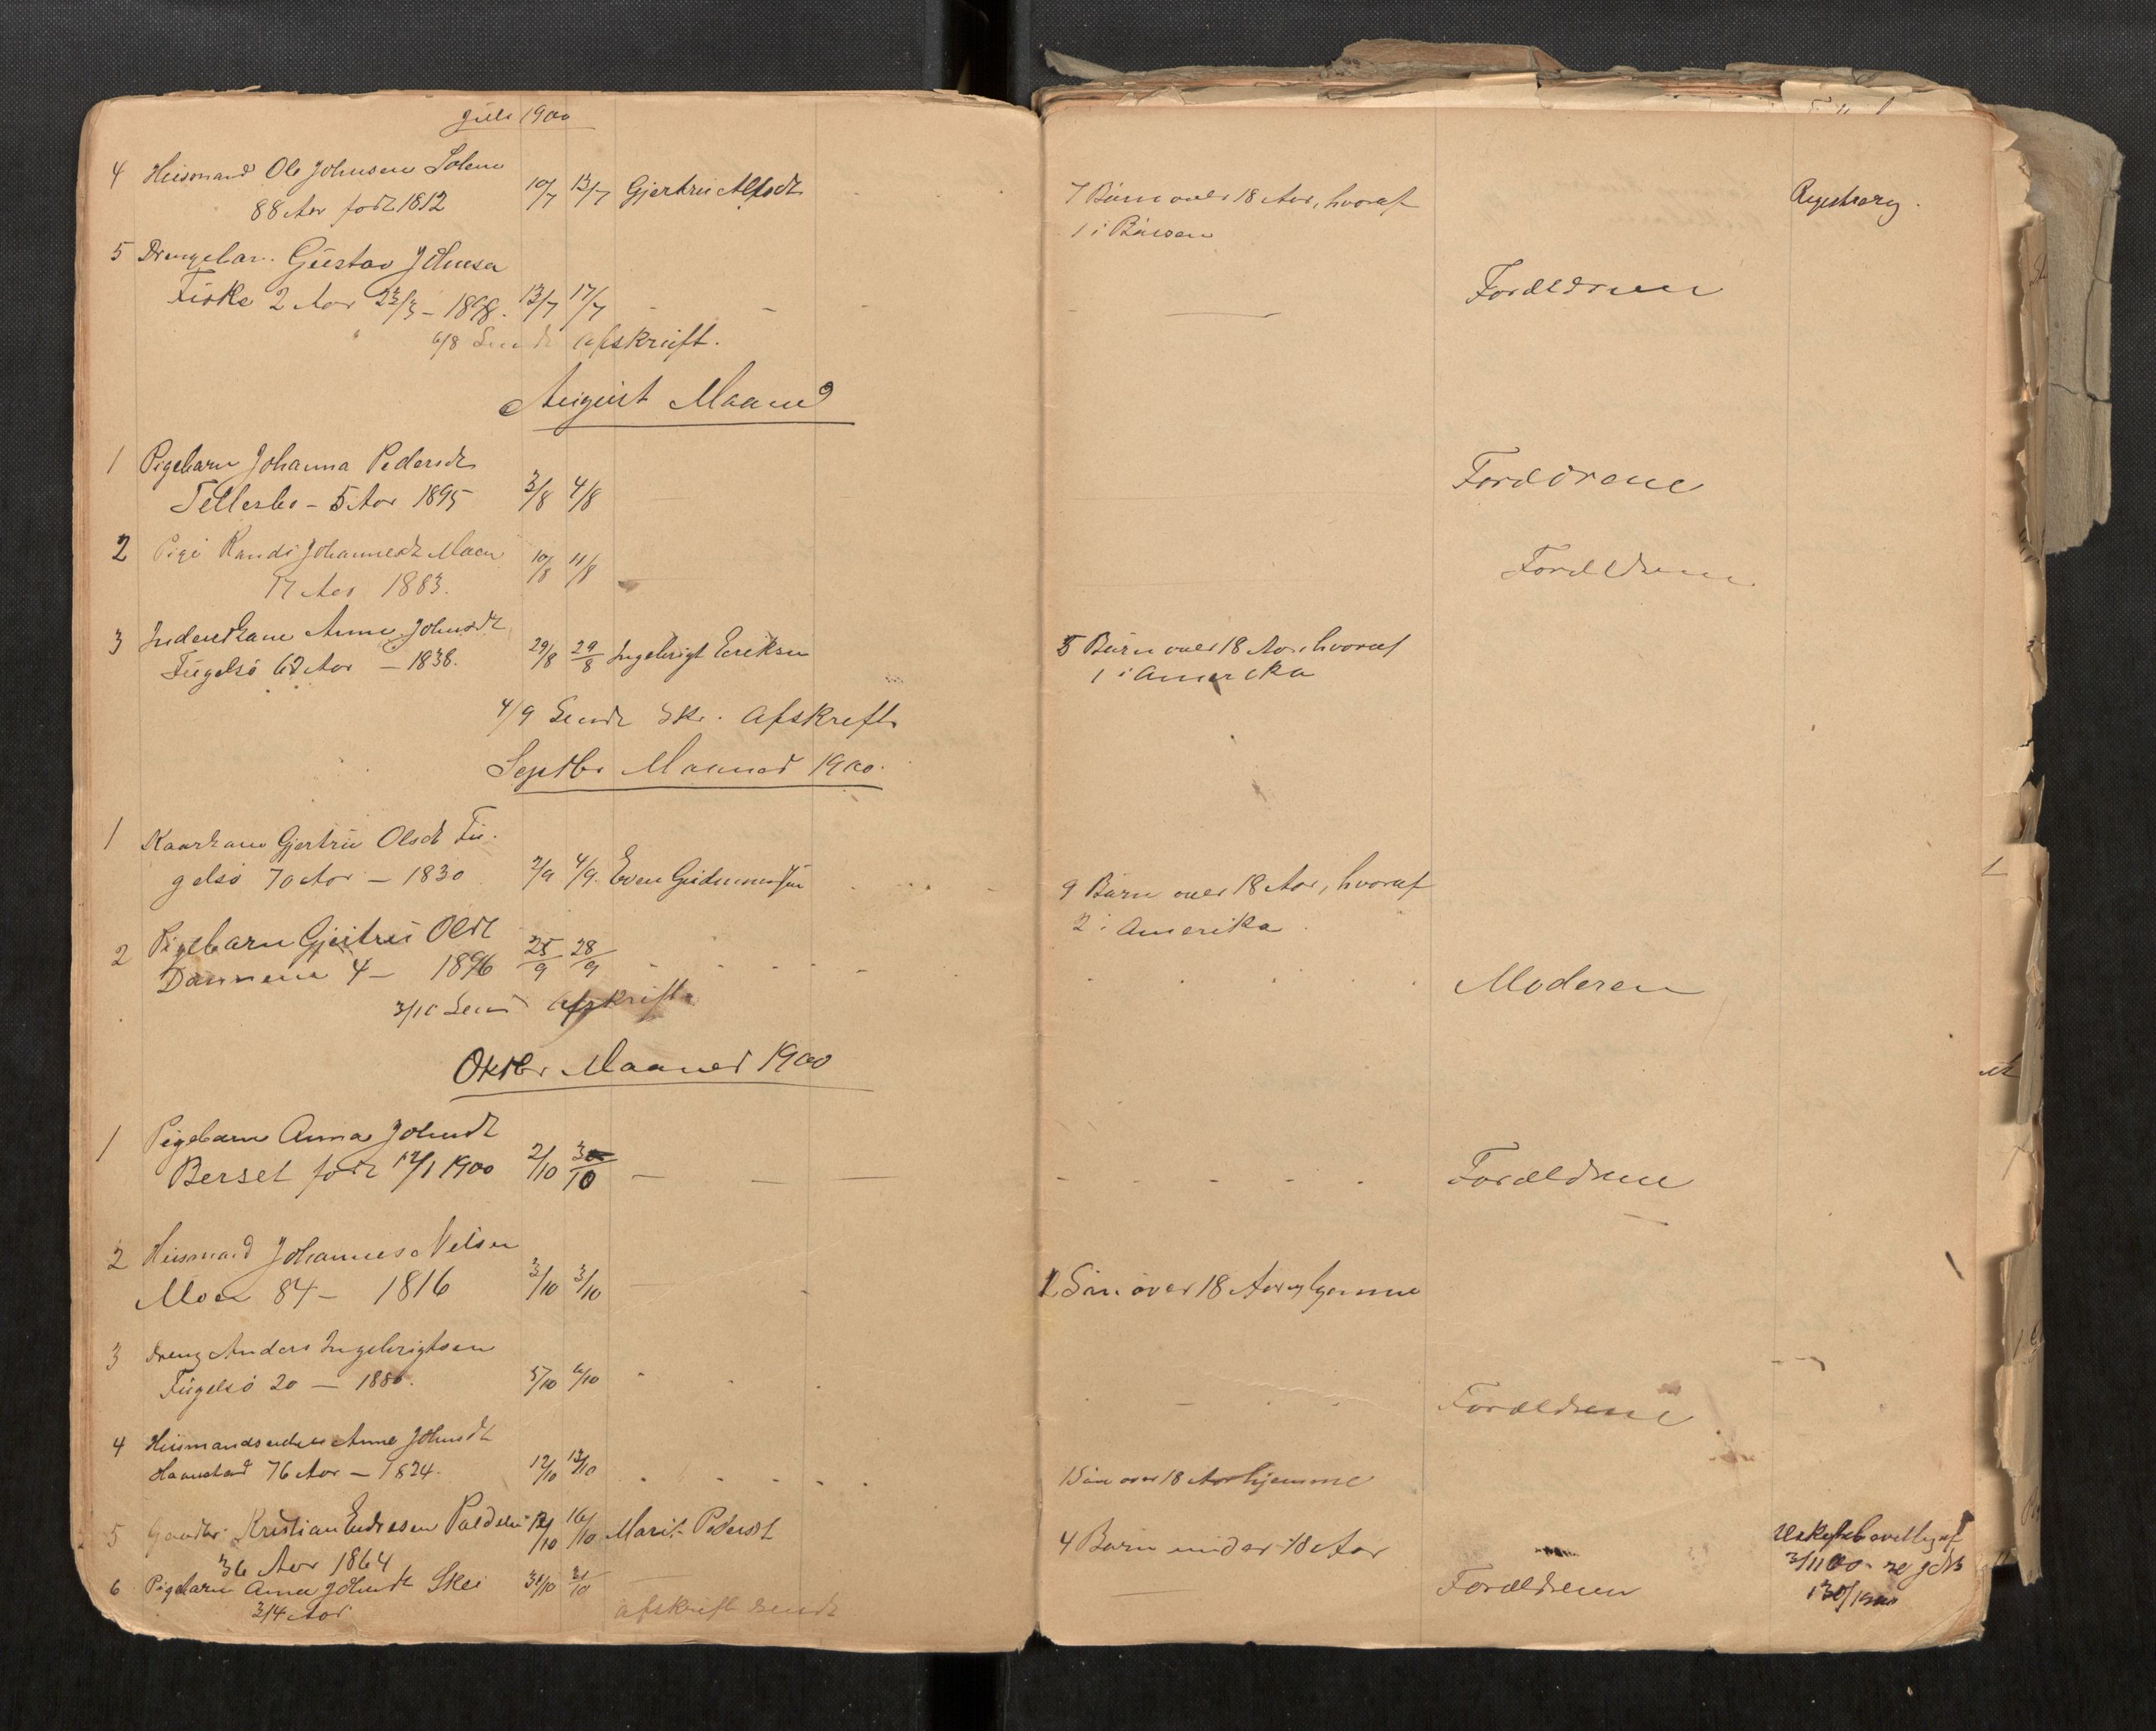 Juli 1900
4 Husmand Ole Johnsen Solem 10/7 13/7 Gjertru
88 Aar født 1812
7 Børn over 18 Aar, hvoraf
1 i
5 Drengebarn Gustav Johnsen
Fiske 2 Aar 23/3 - 1898. 13/7 17/7
Forældrene
6/8 Sendt Afskrift.
August Maaned
1 Pigebarn Johanna Pedersdt
5 Aar 1895 3/8 4/8
Forældrene
2 Pige Randi Johannesdt Moen 10/8 11/8
17 Aar 1883.
Forældrene
3 Anne Johnsdt
Fugelsö 62 Aar - 1838. 29/8 29/8 Ingebrigt Eriksen
5 Børn over 18 Aar, hvoraf
1 i Amerika
4/9 Sendt Skr. Afskrift
Septbr Maaned 1900.
1 Kaarkone Gjertru Olsdt Fu-
gelsö 70 Aar - 1830 2/9 4/9 Even Gudmundsen
9 Børn over 18 Aar, hvoraf
2 i Amerika
2 Pigebarn Gjertru Olsdt
4 - 1896 25/9 28/9
Moderen
3/10 Sendt Afskrift
Oktbr Maaned 1900
1 Pigebarn Anna Johnsdt
Berset født 12/1 1900 2/10 /10
Forældrene
2 Husmand Johannes Nilsen
Moen 84 - 1816 3/10 3/10
1 Søn over 18 Aar hjemme
3 Dreng Anders Ingebrigtsen
Fugelsö 20 - 1880. 5/10 6/10
Forældrene
4 Husmandsenke Anne Johnsdt
76 Aar - 1824. 12/10 13/10
1 Søn over 18 Aar hjemme
5 Gaardbr. Kristian Endresen 12/10 16/10 Marit Pedersdt
36 Aar 1864
4 Børn under 18 Aar
3/11 00
6 Pigebarn Anne Johnsdt Skei 31/10 31/10
3/4 Aar
Forældrene
Afskrift sendt